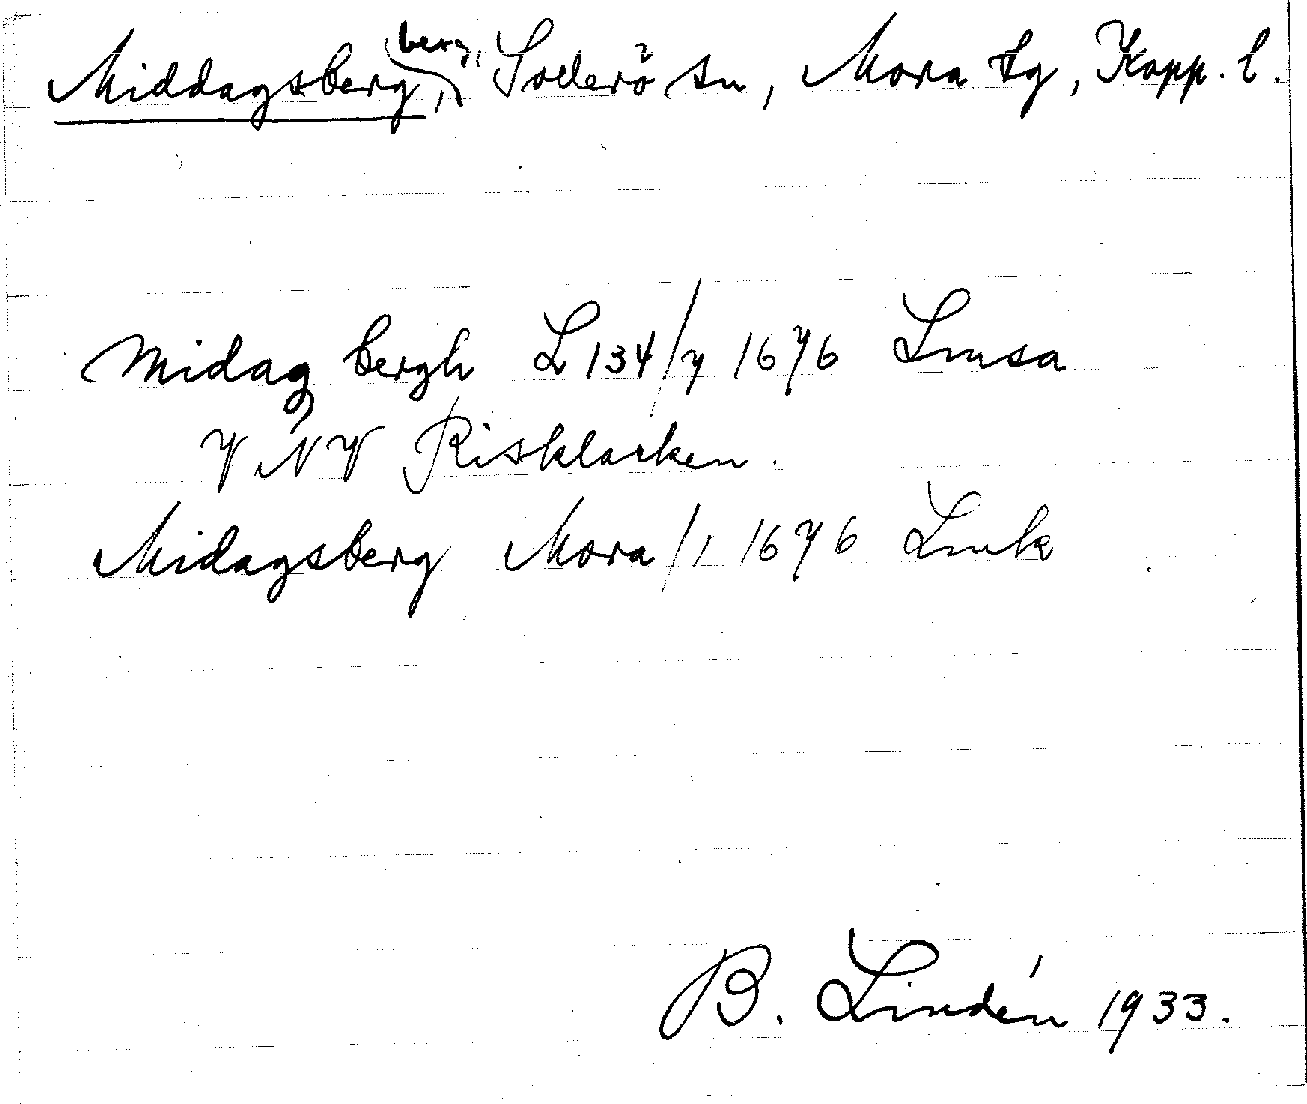 Middagsberg, berg, Solerö sn, Mora tg, Kopp. l.
Midag bergh L 134/7 1676 Lmsa
V.NV Risklacken.
Midagsberg Mora/1 1676 Lmk
B. Lindén 1933.